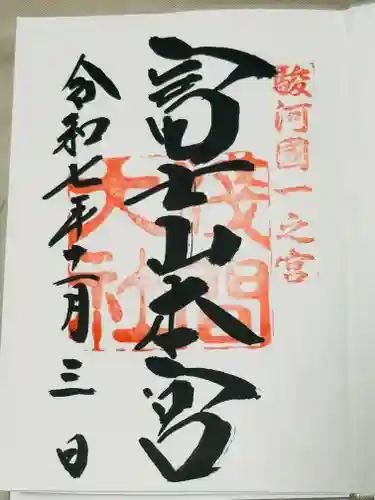 駿河國一之宮
富士山本宮
淺間
大社
令和七年十一月三日